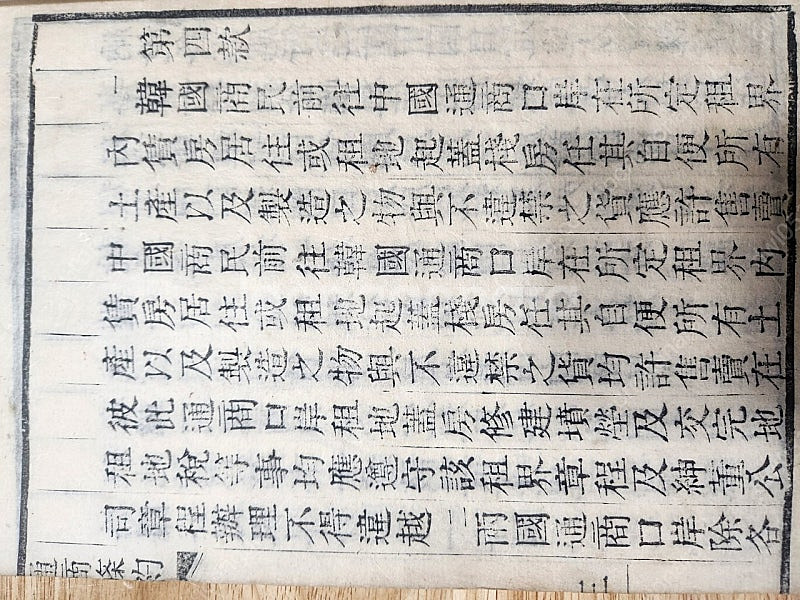 第四款
一韓國商民前往中國通商口岸在所定租界
內賃房居住或租地起蓋棧房任其自便所有
土產以及製造之物與不違禁之貨應許售賣
中國商民前往韓國通商口岸在所定租界內
賃房居住或租地起蓋棧房任其自便所有土
產以及製造之物與不違禁之貨均許售賣在
彼此通商口岸租地蓋房修建墳塋及交完地
租地稅等事均應遵守該租界章程及紳董公
司章程辦理不得違越 一兩國通商口岸除各
商條約
三